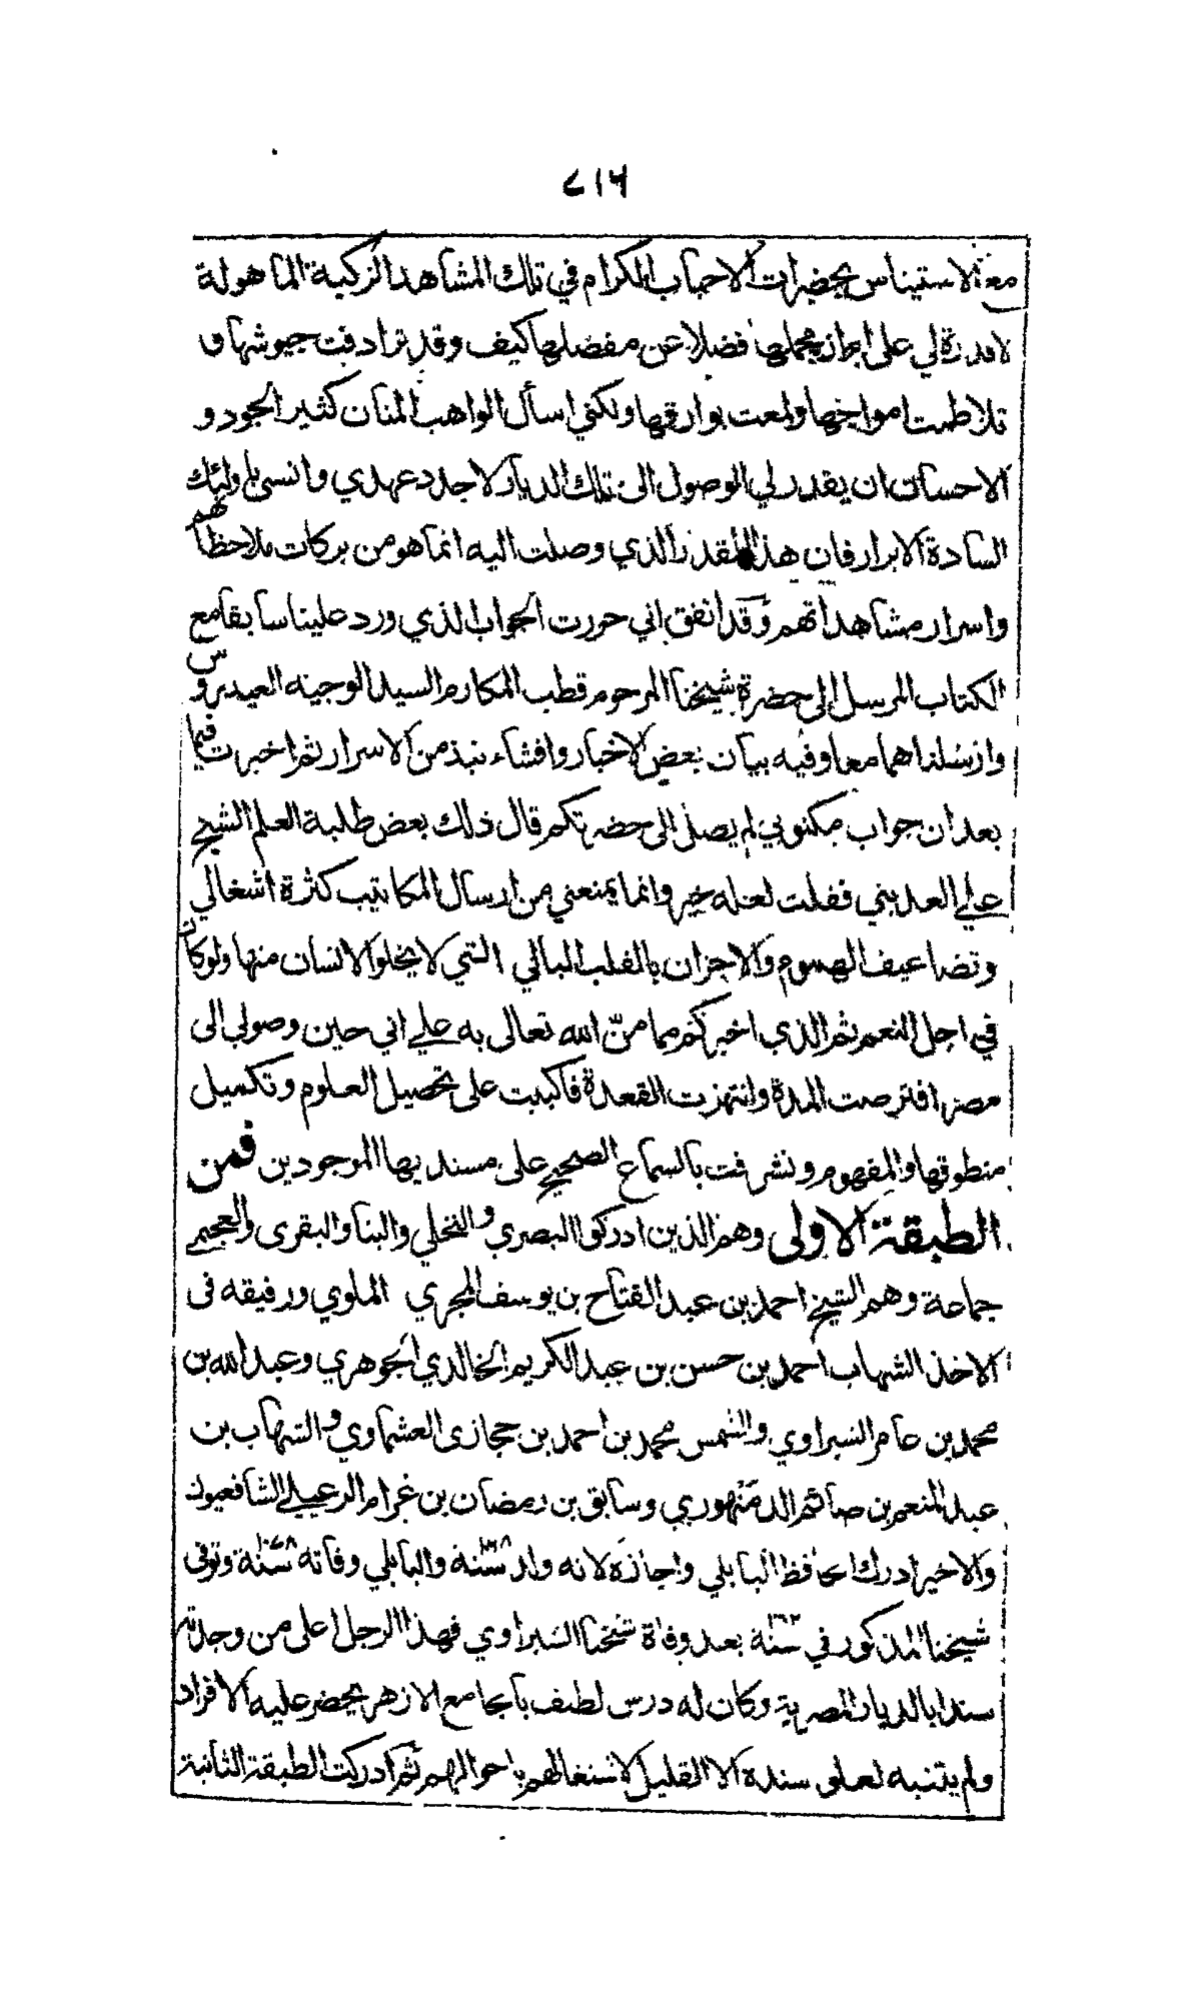 ٢١٦
مع الاستيناس بحضرات الاحباب الكرام في تلك المشاهد الزكية المأهولة
لا قدرة لي على ابراز مجملها فضلا عن مفصلها كيف وقد ترادفت جيوشها و
تلاطمت امواجها ولمعت بوارقها ولكني اسأل الواهب المنان كثير الجود و
الاحسان ان يقدر لي الوصول الى تلك الديار لاجدد عهدي وانسي باولئك
السادة الابرار فان هذا المقدر الذي وصلت اليه انما هو من بركات ملاحظاتهم
واسرار مشاهداتهم وقد اتفق اني حررت الجواب الذي ورد علينا سابقا مع
الكتاب المرسل الى حضرة شيخنا المرحوم قطب المكارم السيد الوجيه العيدروس
وارسلناهما معا وفيه بيان بعض الاخبار وافشاء نبذ من الاسرار ثم اخبرت فيما
بعد ان جواب مكتوبي لم يصل الى حضرتكم قال ذلك بعض طلبة العلم الشيخ
علي العديني فقلت لعله خير وانما يمنعني من ارسال المكاتيب كثرة اشغالي
وتضاعيف الهموم والاحزان بالقلب البالي التي لا يخلو الانسان منها ولو كان
في اجل النعم ثم الذي اخبركم مما منّ الله تعالى به علي اني حين وصولي الى
مصر افترصت المدة وانتهزت القعدة فاكببت على تحصيل العلوم وتكميل
منطوقها والمفهوم وتشرفت بالسماع الصحيح على مسنديها الموجودين فمن
الطبقة الاولى وهم الذين ادركوا البصري والنخلي والبنا والبقرى والعجيمي
جماعة وهم الشيخ احمد بن عبد الفتاح بن يوسف المجري الملوي ورفيقه فى
الاخذ الشهاب احمد بن حسن بن عبد الكريم الخالدي الجوهري وعبد الله بن
محمد بن عامر الشبراوي والشمس محمد بن احمد بن حجازى العشماوي والشهاب بن
عبد المنعم بن صائم الدمنهوري وسابق بن رمضان بن غرام الزعبيلي الشافعيون
والاخير ادرك الحافظ البابلي واجازه لانه ولد سنة ١٠٦٨ والبابلي وفاته سنة ١٠٧٨ وتوفى
شيخنا المذكور في سنة ١١٦٢ بعد وفاة شيخنا الشبراوي فهذا الرجل اعلى من وجدته
سندا بالديار المصرية وكان له درس لطيف بالجامع الازهر يحضر عليه الافراد
ولم يتنبه لعلو سنده الا القليل لاشتغالهم باحوالهم ثم ادركت الطبقة الثانية